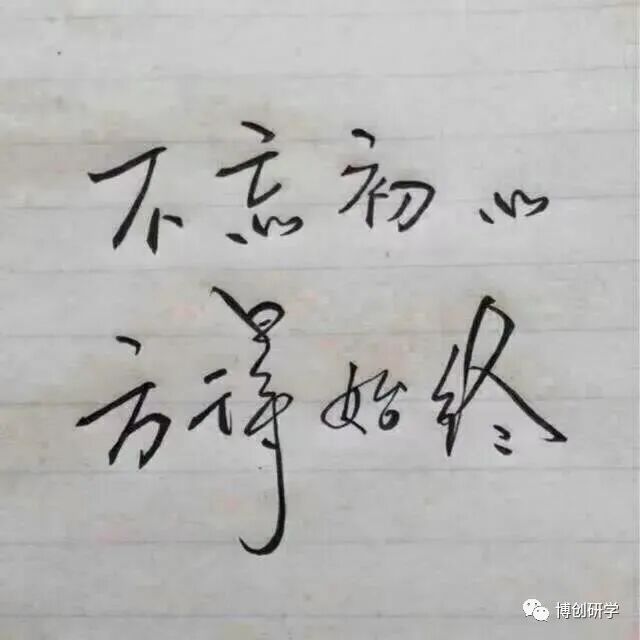 不忘初心
方得始终
博创研学